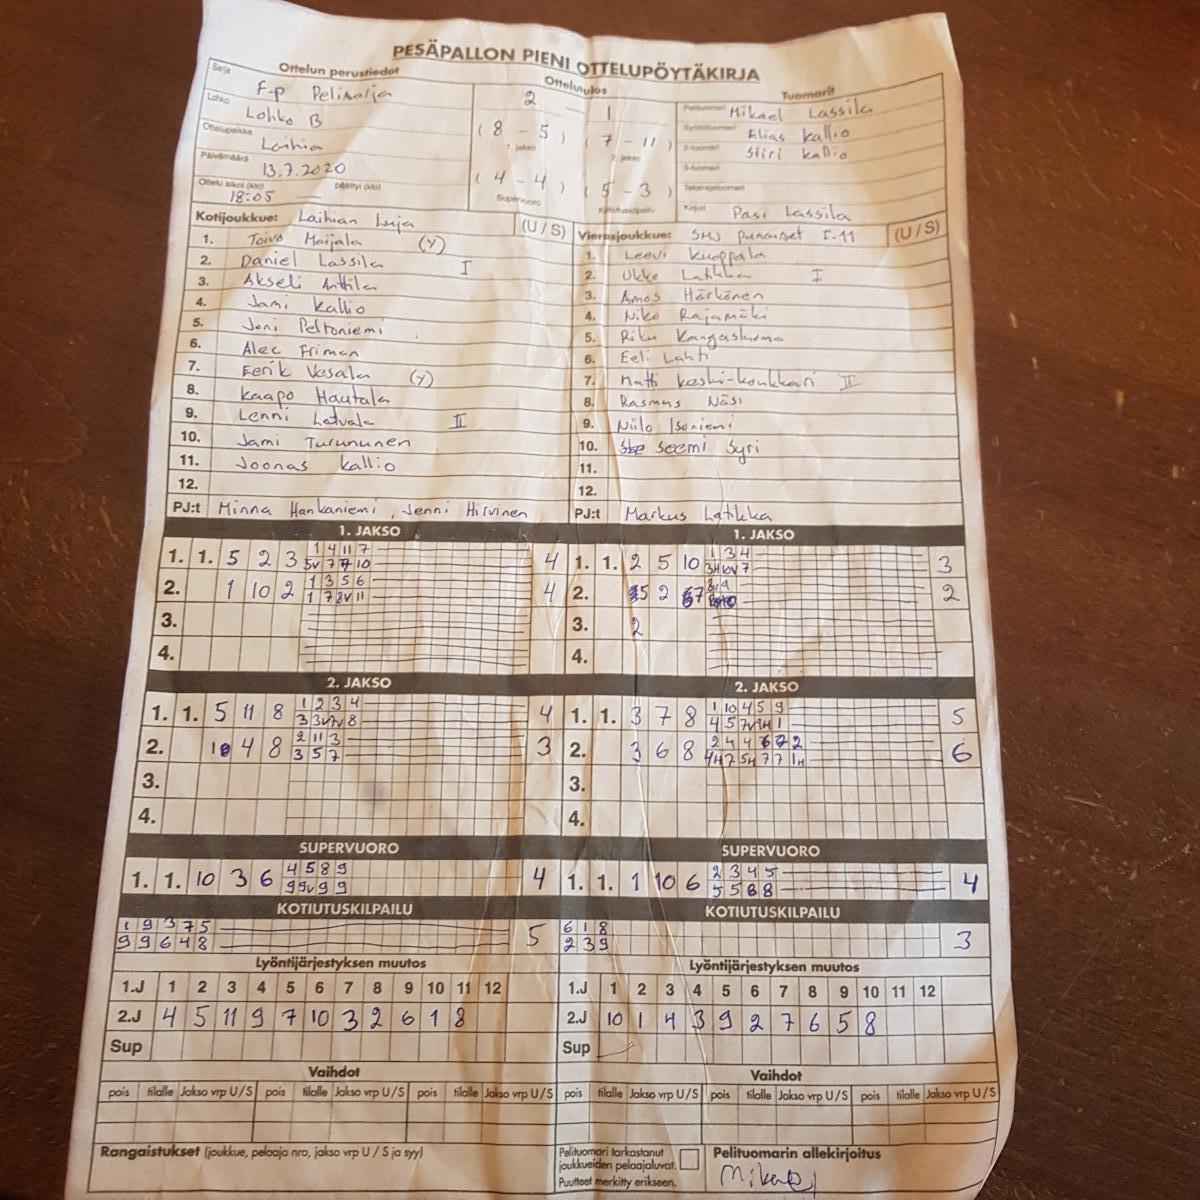 PESÄPALLON PIENI OTTELUPÖYTÄKIRJA
Ottelun perustiedot Ottelutulos Tuomarit
Sarja F-p Pelisarja 2 - 1 Pelituomari Mikael Lassila
Lohko Lohko B (8 - 5) (7 - 11) Syöttötuomari Elias Kallio
1. jakso 2. jakso 2-tuomari Siiri Kallio
Ottelupaikka Laihia 3-tuomari
Päivämäärä 13.7.2020 (4 - 4) (5 - 3) Takarajatuomari
Ottelu alkoi (klo) 18:05 päättyi (klo) — Supervuoro Kotiutuskilpailu Kirjuri Pasi Lassila
Kotijoukkue: Laihian Luja (U / S) Vierasjoukkue: SMJ Punaiset F-11 (U / S)
1. Toivo Maijala (Y) 1. Leevi Kuoppala
2. Daniel Lassila I 2. Ukko Latikka I
3. Akseli Anttila 3. Amos Härkönen
4. Jami Kallio 4. Niko Rajamäki
5. Joni Peltoniemi 5. Riku
6. Alec Friman 6. Eeli Lahti
7. Eerik Vesala (Y) 7. Matti Keski-Koukkari II
8. Kaapo Hautala 8. Rasmus Näsi
9. Lenni Latvala II 9. Niilo Isoniemi
10. Jami Turununen 10. Seemi Syri
11. Joonas Kallio 11.
12. 12.
PJ:t Minna Hankaniemi, Jenni Hirvinen PJ:t Markus Latikka
1. JAKSO 1. JAKSO
1. 1. 5 2 3 1 4 11 7 4 1. 1. 2 5 10 1 3 4 3
5V 7 7 10 3H 10V 7
2. 1 10 2 1 3 5 6 4 2. 5 2 7 8 9 2
1 7 8V 11
3. 3. 2
4. 4.
2. JAKSO 2. JAKSO
1. 1. 5 11 8 1 2 3 4 4 1. 1. 3 7 8 1 10 4 5 9 5
3 3V 7V 8 4 5 7V 1H 1
2. 10 4 8 2 11 3 3 2. 3 6 8 2 4 4 6 7 2 6
3 5 7 4H 7 5H 7 7 1H
3. 3.
4. 4.
SUPERVUORO SUPERVUORO
1. 1. 10 3 6 4 5 8 9 4 1. 1. 1 10 6 2 3 4 5 4
9 9V 9 9 5 5 8 8
KOTIUTUSKILPAILU KOTIUTUSKILPAILU
1 9 3 7 5 5 6 1 8 3
9 9 6 4 8 2 3 9
Lyöntijärjestyksen muutos Lyöntijärjestyksen muutos
1.J 1 2 3 4 5 6 7 8 9 10 11 12 1.J 1 2 3 4 5 6 7 8 9 10 11 12
2.J 4 5 11 9 7 10 3 2 6 1 8 2.J 10 1 4 3 9 2 7 6 5 8
Sup Sup
Vaihdot Vaihdot
pois tilalle Jakso vrp U/S pois tilalle Jakso vrp U/S pois tilalle Jakso vrp U/S pois tilalle Jakso vrp U/S pois tilalle Jakso vrp U/S pois tilalle Jakso vrp U/S
Rangaistukset (joukkue, pelaaja nro, jakso vrp U / S ja syy) Pelituomari tarkastanut Pelituomarin allekirjoitus
joukkueiden pelaajaluvat.
Puutteet merkitty erikseen.